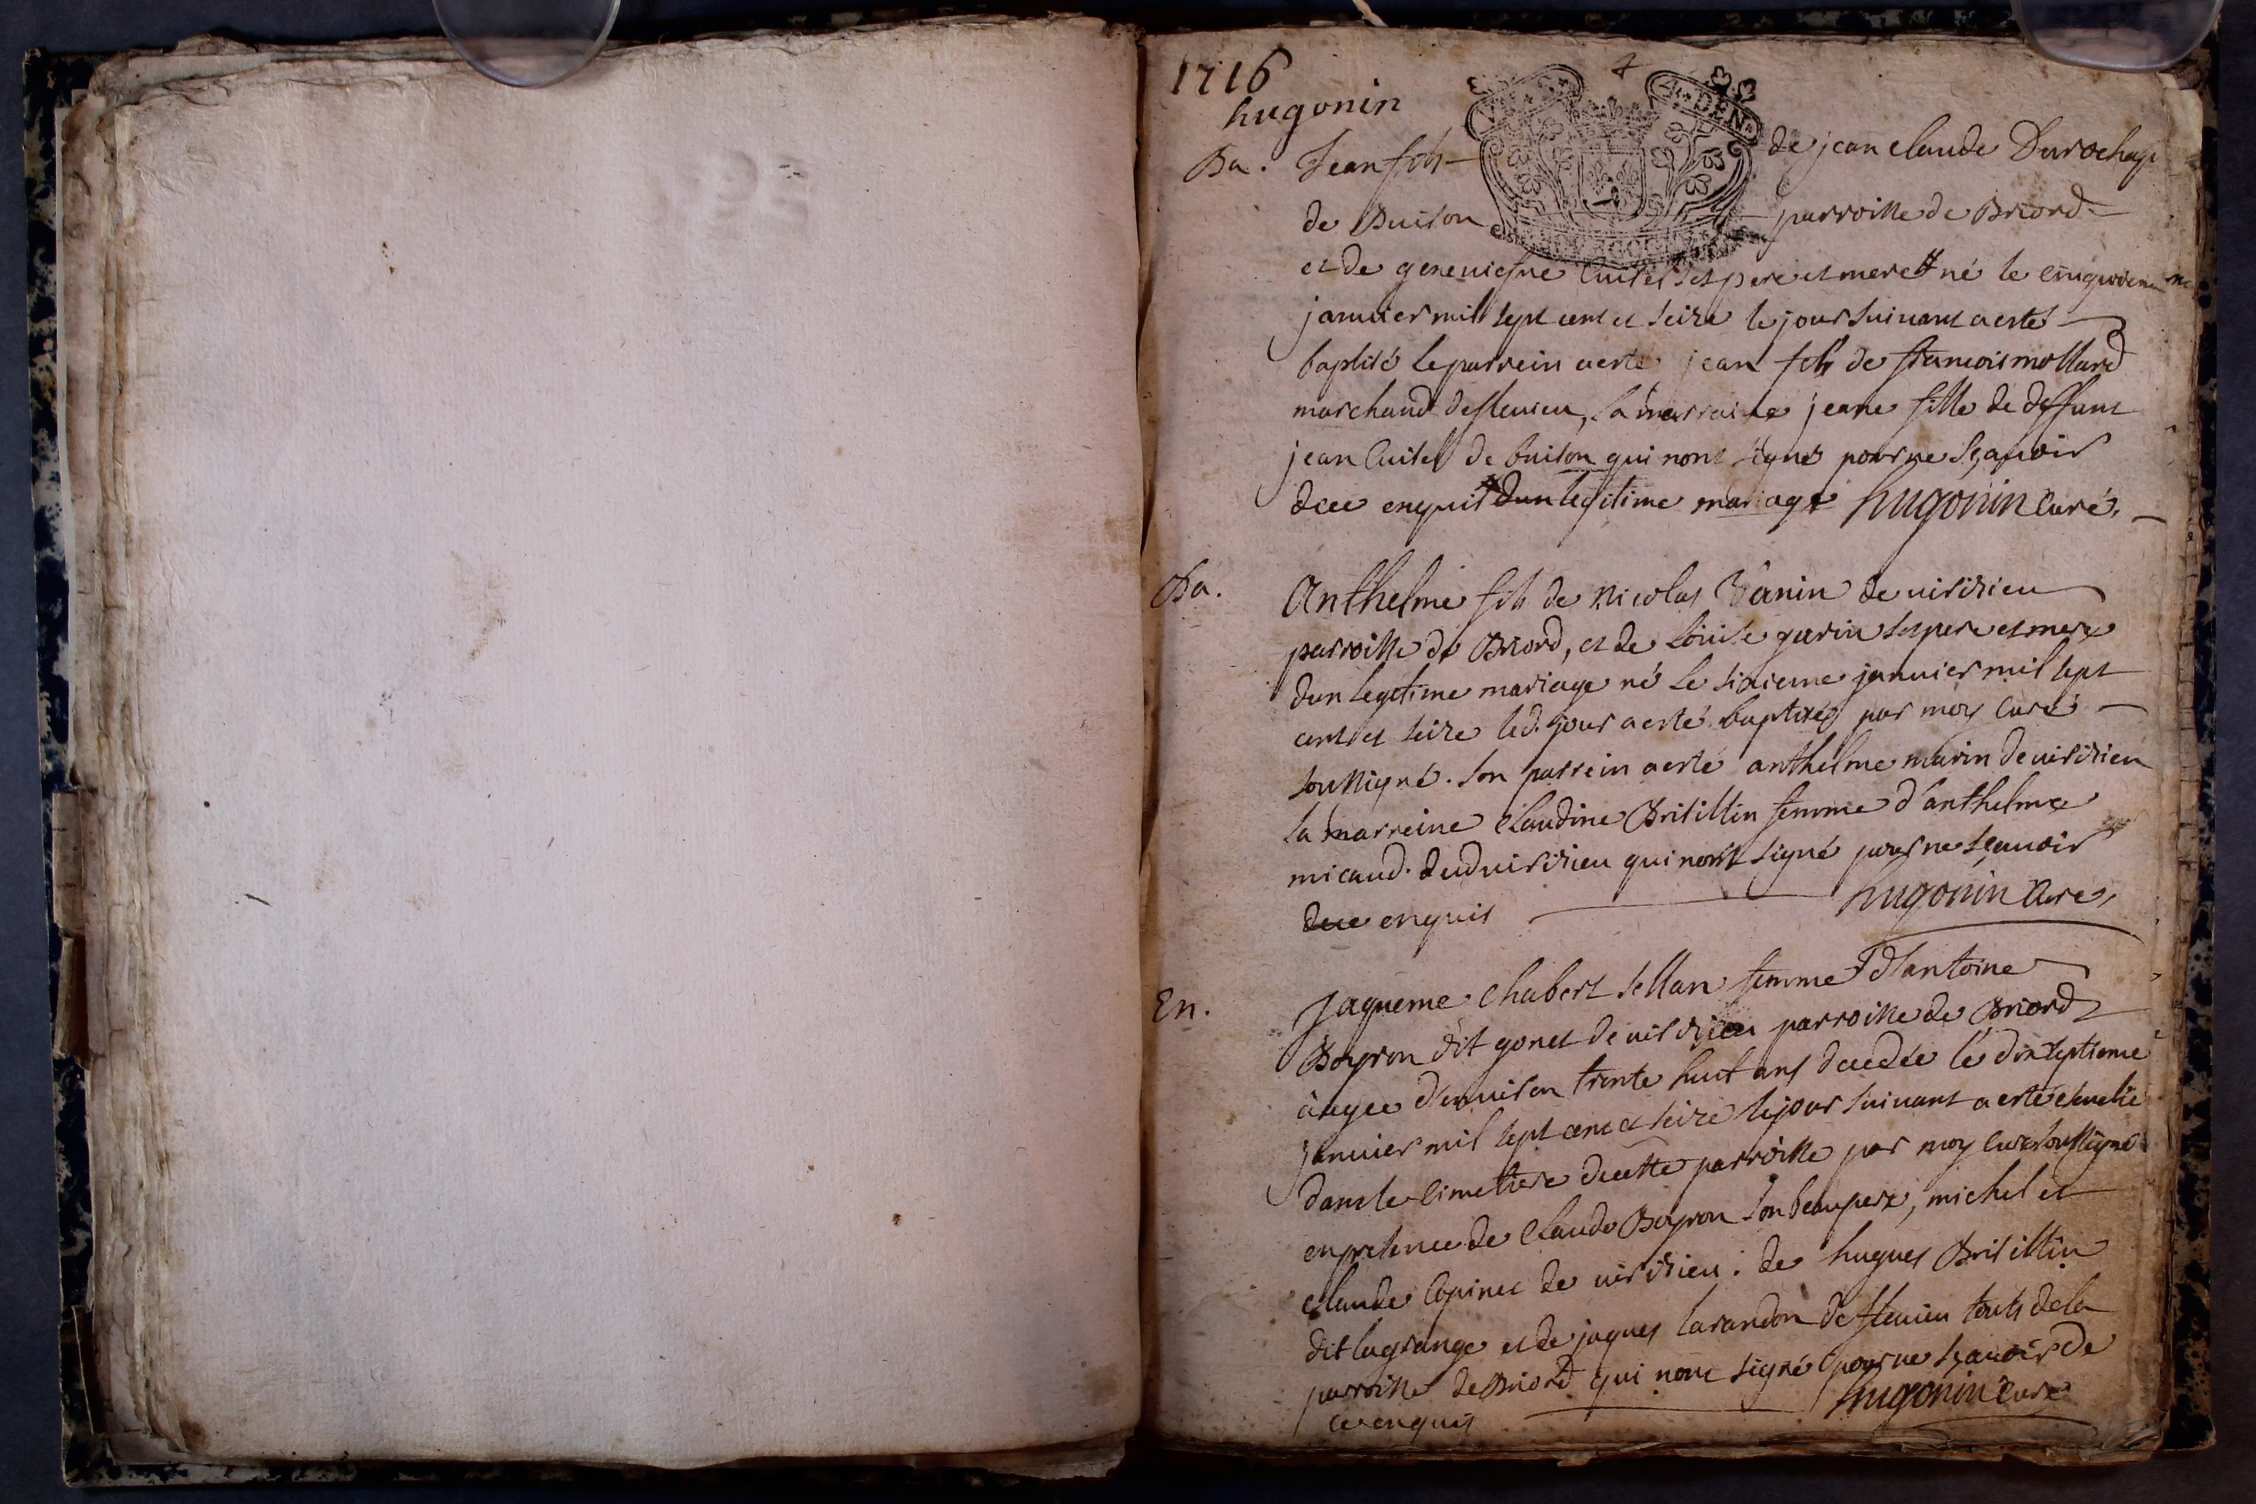 1716
hugonin
Ba. Jean fils de jean claude Durochap
de Buison parroisse de Briord
et de genevieve Cuitel ses pere et mere # né le cinquieme
janvier mil sept cent et seize le jour suivant a esté
baptisé le parrein a esté jean fils de francois mollard
marchand de flevieu, la marraine jeane fille de deffunt
jean Cuitel de buison qui nont signés pour ne sçavoir
dece enquis # dun legitime mariage hugonin curé.
Ba. Anthelme fils de Nicolas de virisieu
parroisse de Briord, et de Louise garin ses pere et mere
dun legitime mariage né le sixieme janvier mil sept
cent et seize led. jour a esté baptisé par moy curé
soussigné. son parrein a esté anthelme marin de virisieu
la marreine claudine Brisillin femme d'anthelme
micaud. dud virisieu qui nont signé pour ne sçavoir
dece enquis hugonin curé,
En. Jaqueme chabert femme d'antoine
Boyron dit gonet de virisieu parroisse de Briord
àagee d'environ trente huit ans decedée le dixseptieme
janvier mil sept cent et seize le jour suivant a esté ensevelie
dans le cimetiere decette parroisse par moy curé soussigné
en presence de claude Boyron son beaupere, michel et
claude Copinet de virisieu. de hugues Brisillin
dit lagrange et de jaques larandon de flevieu touts dela
parroisse de Briord qui nont signé pour ne sçavoir de
ce enquis hugonin curé